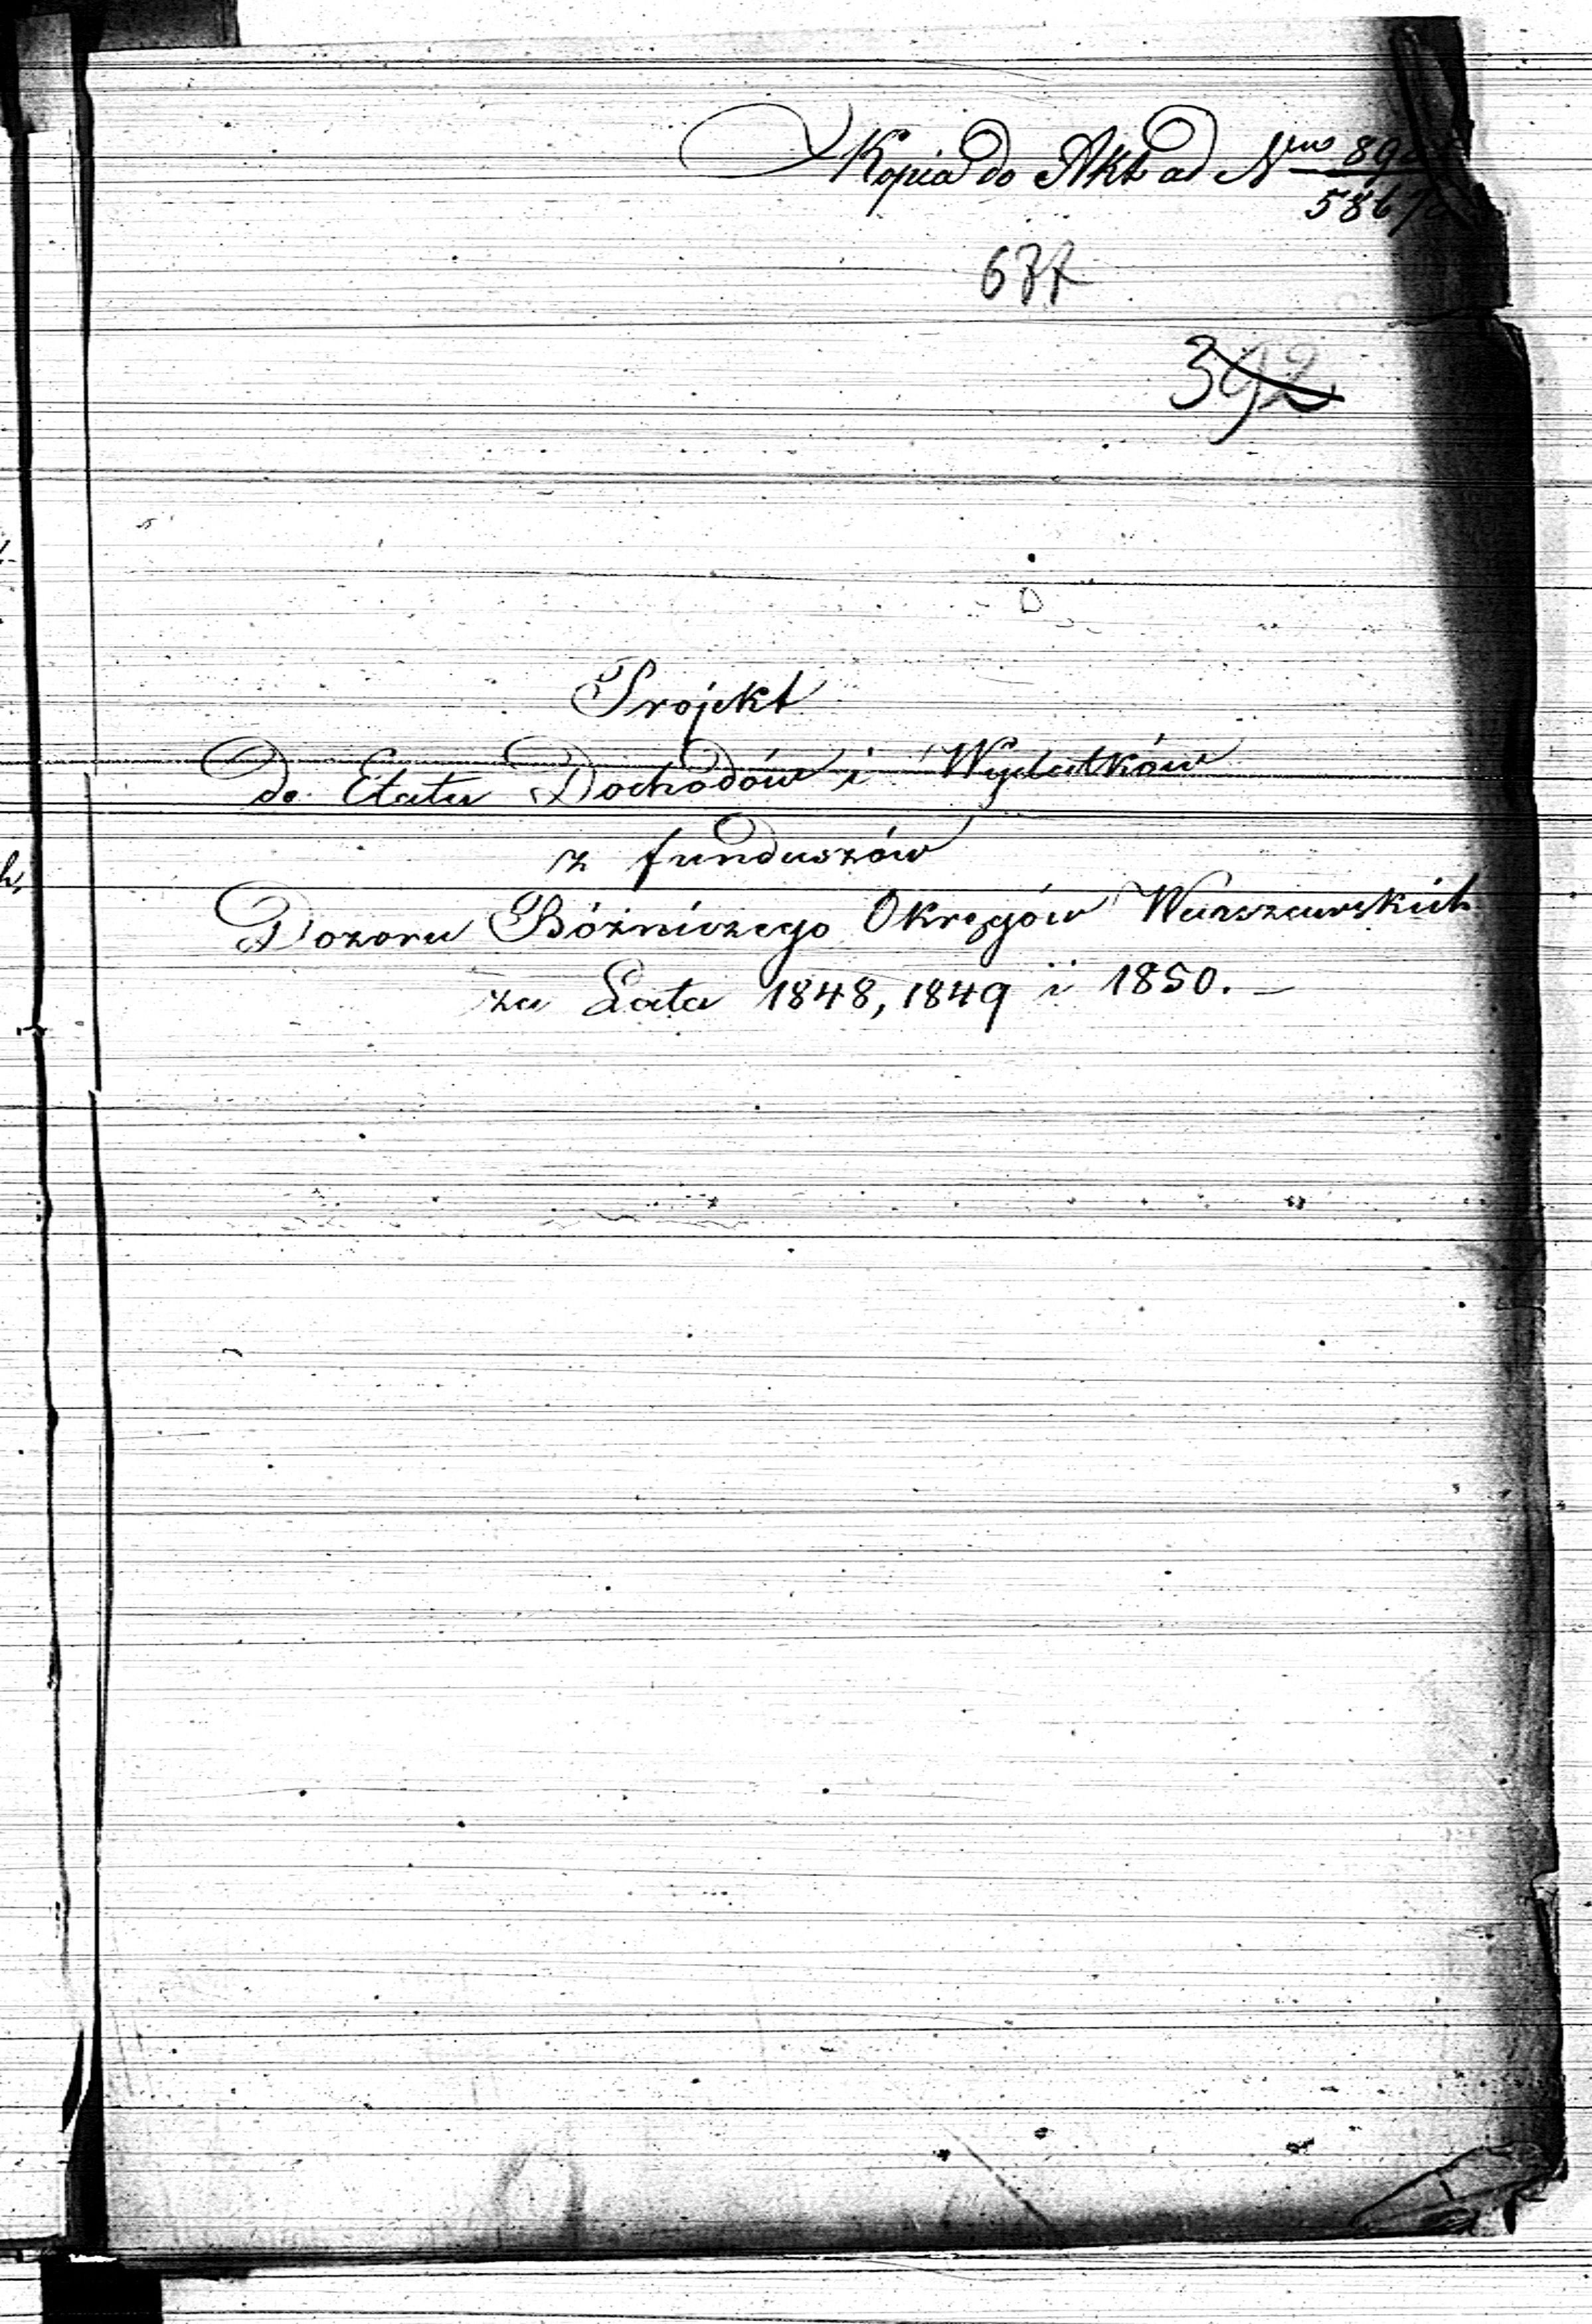 Kopia do Akt ad N<sup>ro</sup>
637
392
Projekt
do Etatu Dochodów i Wydatków
z funduszów
Dozoru Bóżniczego Okręgów Warszawskich
za Lata 1848, 1849 i 1850.